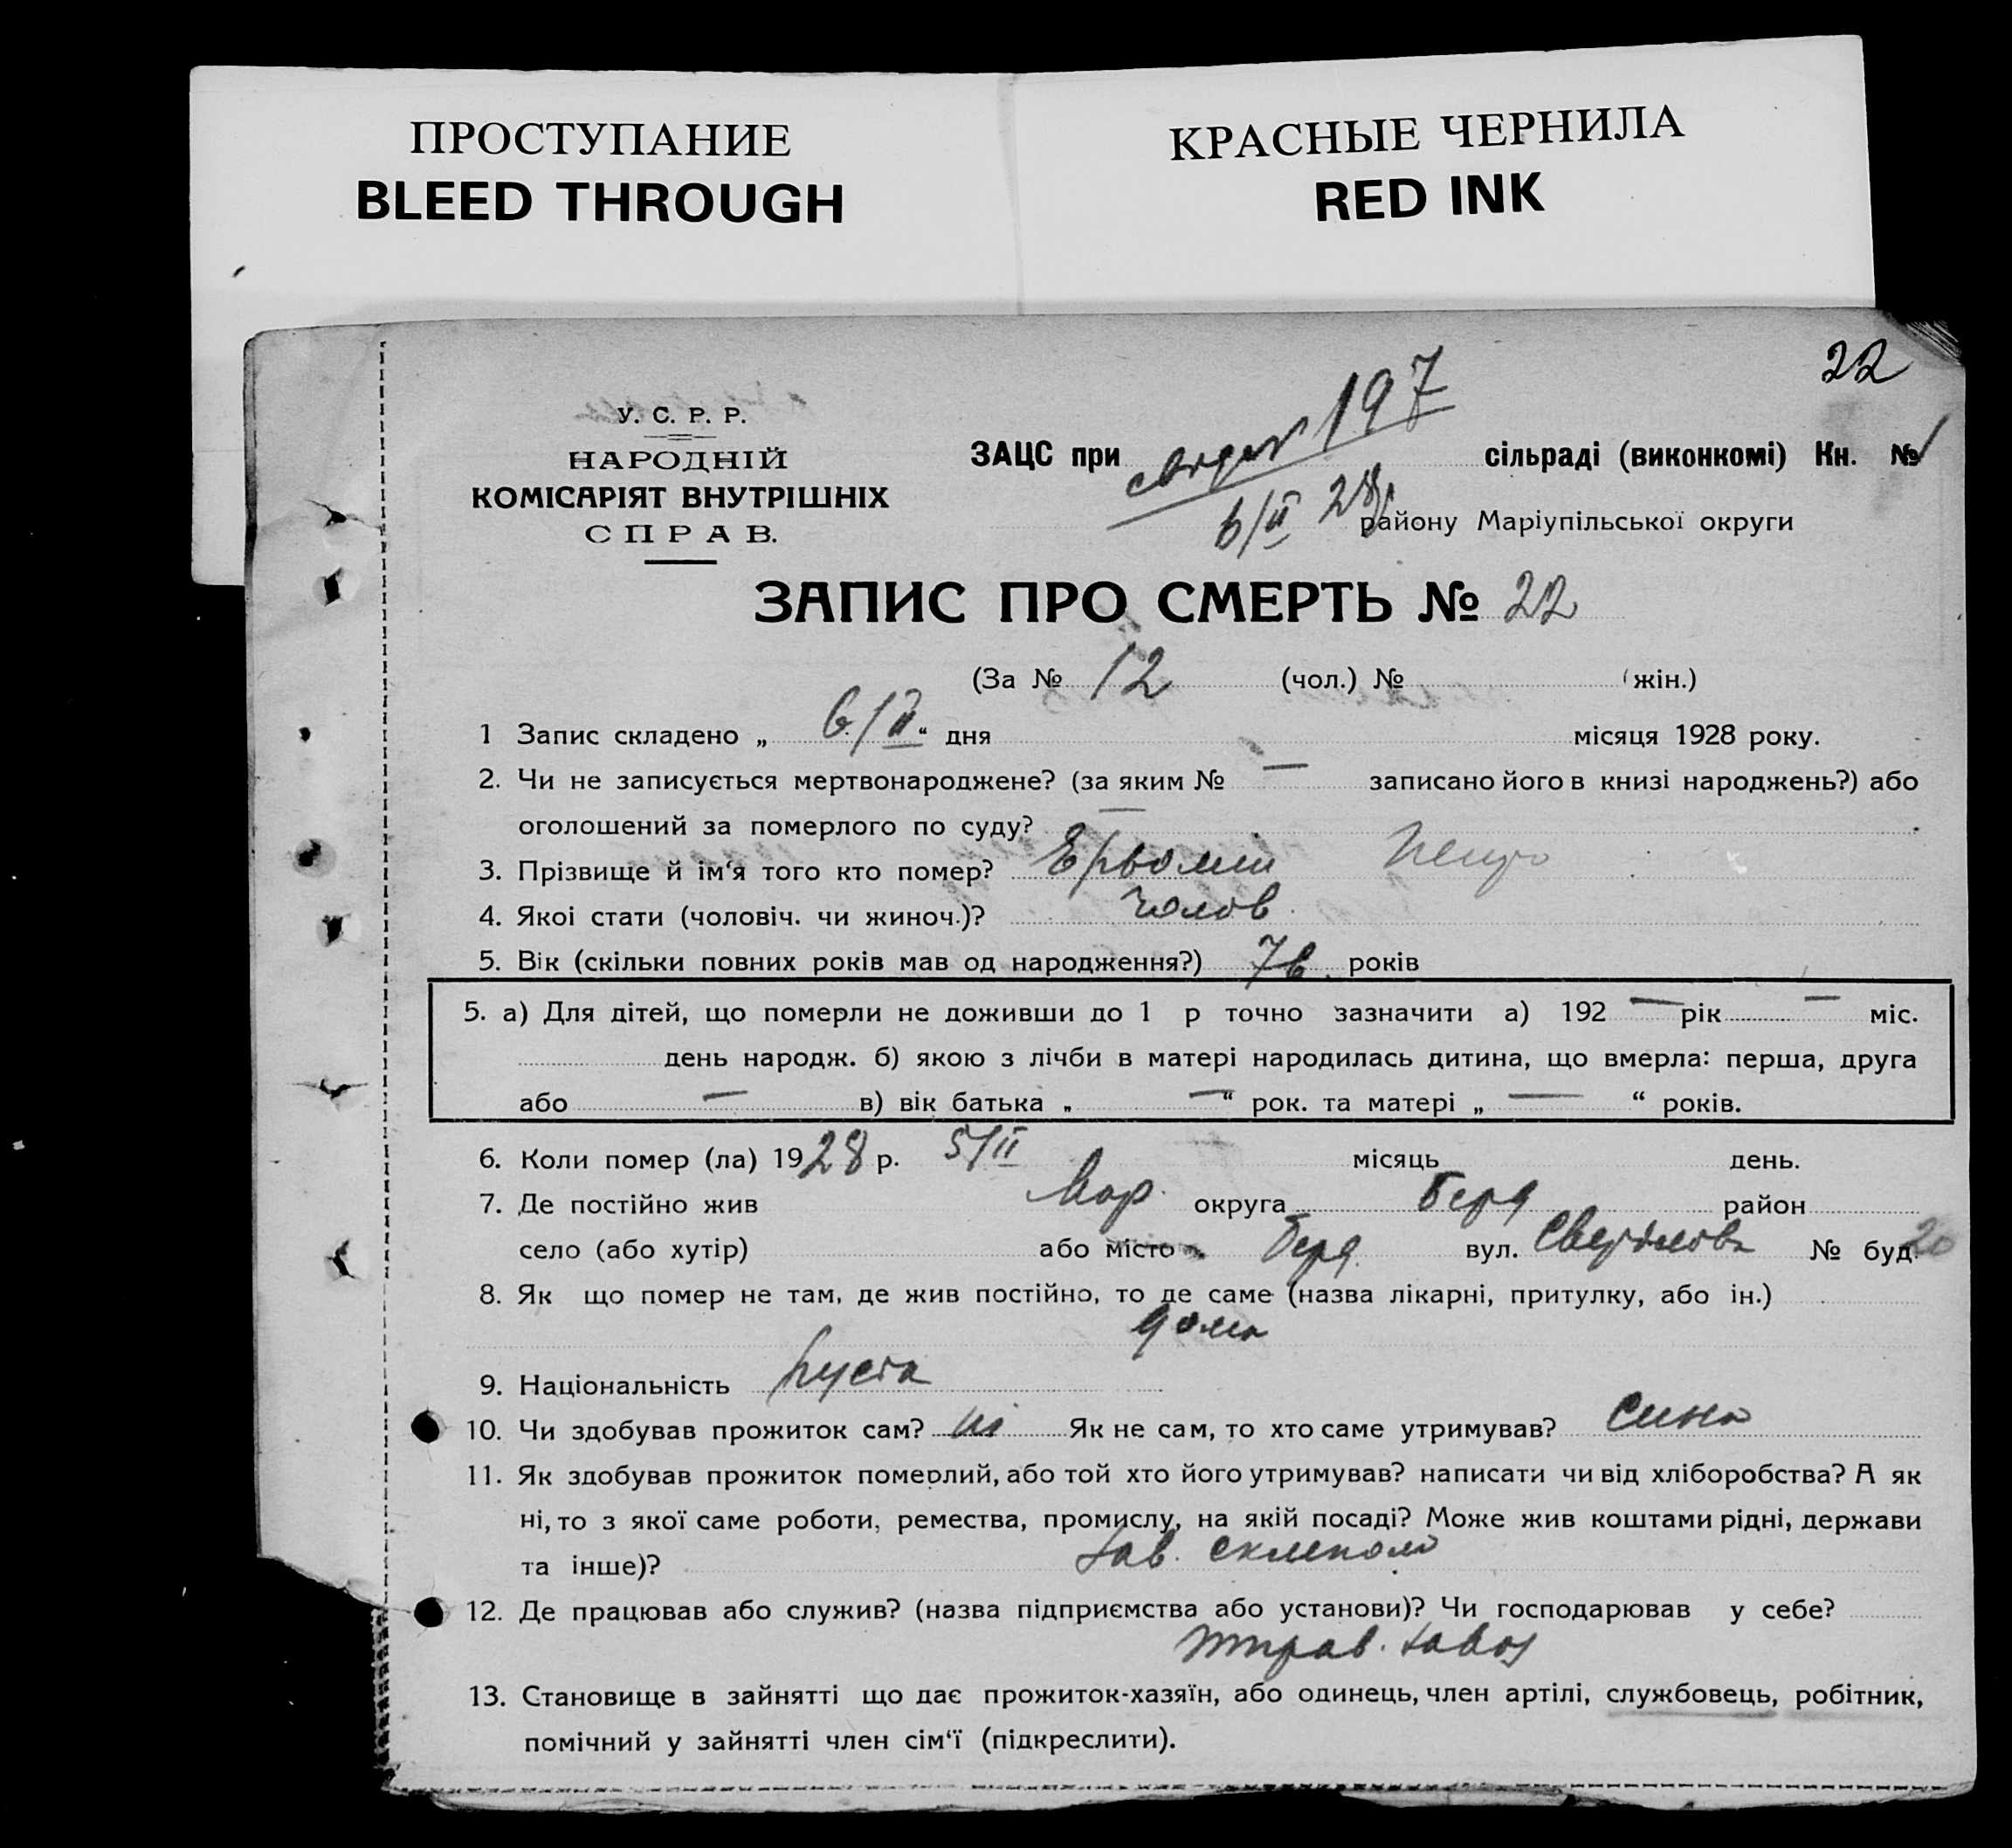 ПРОСТУПАНИЕ
BLEED THROUGH
КРАСНЫЕ ЧЕРНИЛА
RED INK
22
У. С. Р. Р.
НАРОДНІЙ
КОМІСАРІЯТ ВНУТРІШНІХ
СПРАВ.
197
ЗАЦС при сільраді (виконкомі) Кн. №
6/II 28р
району Маріупільської округи
ЗАПИС ПРО СМЕРТЬ № 22
(За № 12 (чол.) № (жін.)
1 Запис складено „ 6/II “ дня місяця 1928 року.
2. Чи не записується мертвонароджене? (за яким № — записано його в книзі народжень?) або
оголошений за померлого по суду? —
3. Прізвище й ім‘я того кто помер?
4. Якоі стати (чоловіч. чи жиноч.)? Чолов
5. Вік (скільки повних років мав од народження?) років
5. а) Для дітей, що померли не доживши до 1 р точно зазначити а) 192 — рік — міс.
день народж. б) якою з лічби в матері народилась дитина, що вмерла: перша, друга
або — в) вік батька „ — “ рок. та матері „ — “ років.
6. Коли помер (ла) 1928 р. 5/II місяць день.
7. Де постійно жив Мар. округа Берд район
село (або хутір) або місто Берд. вул. Свердлова № буд. 20
8. Як що помер не там, де жив постійно, то де саме (назва лікарні, притулку, або ін.)
дома
9. Національність
10. Чи здобував прожиток сам? ні Як не сам, то хто саме утримував? сина
11. Як здобував прожиток померлий, або той хто його утримував? написати чи від хліборобства? А як
ні, то з якої саме роботи, ремества, промислу, на якій посаді? Може жив коштами рідні, держави
та інше)? Зав. складом
12. Де працював або служив? (назва підприємства або установи)? Чи господарював у себе?
13. Становище в зайнятті що дає прожиток-хазяїн, або одинець, член артілі, службовець, робітник,
помічний у зайнятті член сім‘ї (підкреслити).